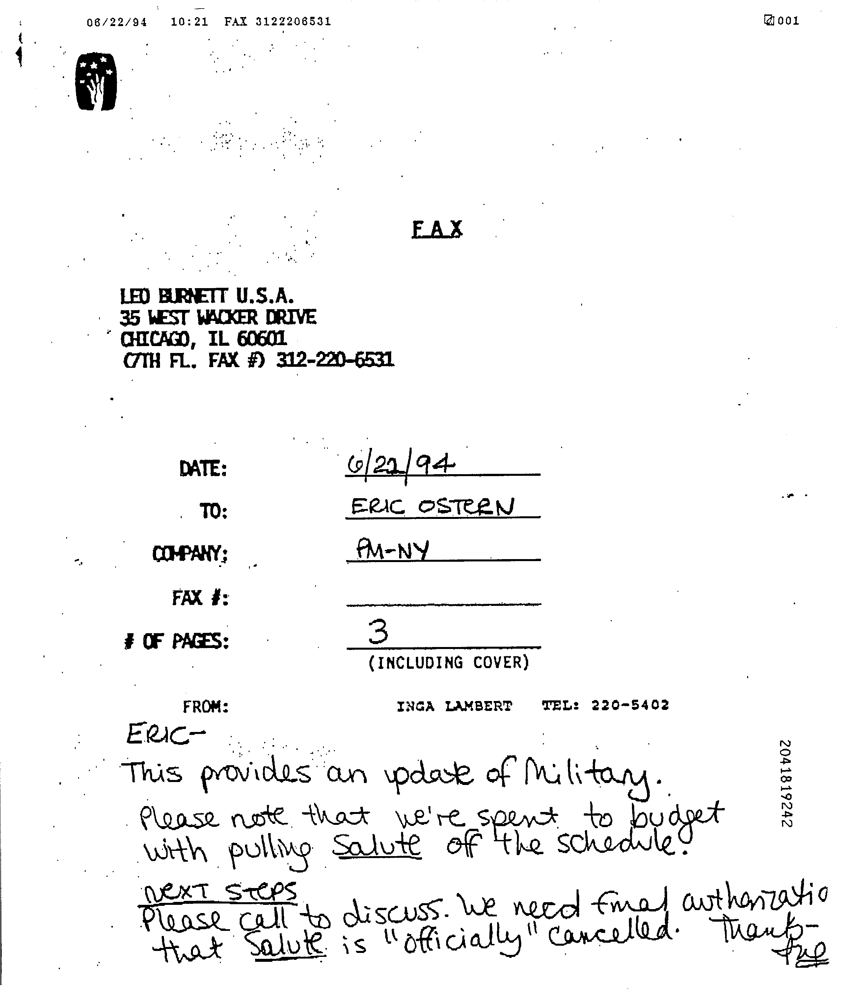 06/22/94 10:21 FAX 3122206531 001
FAX
LEO BURNETT U.S.A.
35 WEST WACKER DRIVE
CHICAGO, IL 60601
(7TH FL. FAX #) 312-220-6531
DATE: 6/22/94
TO: ERIC OSTERN
COMPANY: PM-NY
FAX #:
# OF PAGES: 3
(INCLUDING COVER)
FROM: INGA LAMBERT TEL: 220-5402
ERIC-
This provides an update of Military.
Please note that we're spent to budget
with pulling Salute off the schedule.
NEXT STEPS
Please call to discuss. We need final authorizatio
that Salute is "officially" cancelled. Thanks-
2041819242